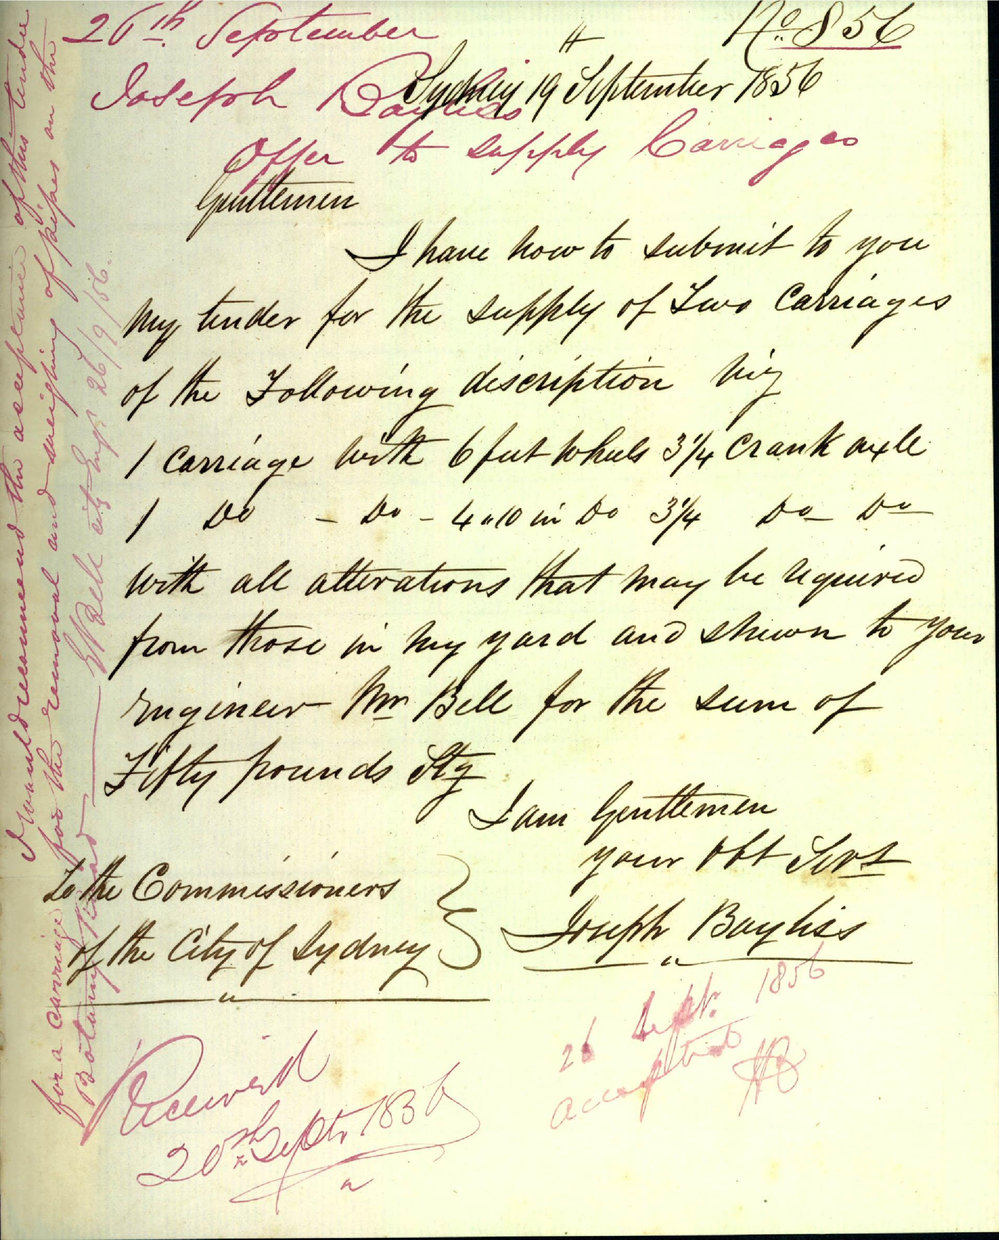 26th September
No 856
Sydney 19 September 1856
Joseph Bayliss
Offer to supply Carriages
Gentlemen
I have now to submit to you
my tender for the supply of Two Carriages
of the Following discription viz
1 Carriage with 6 feet wheels 3 1/4 Crank axle
1 Do - Do - 4 " 10 in Do 3 1/4 Do - Do -
with all alterations that may be required
from those in my yard and shewn to your
Engineer Mr Bell for the sum of
Fifty pounds Stg
I am Gentlemen
your Obt Servt
Joseph Bayliss
To the Commissioners
of the City of Sydney
I would recommend the acceptance of this tender
for a carriage for the removal and weighing of pipes on the
Botany Road — W Bell city Engr 26/9/56.
Received
20th Septr 1856
26 Septr 1856
accepted